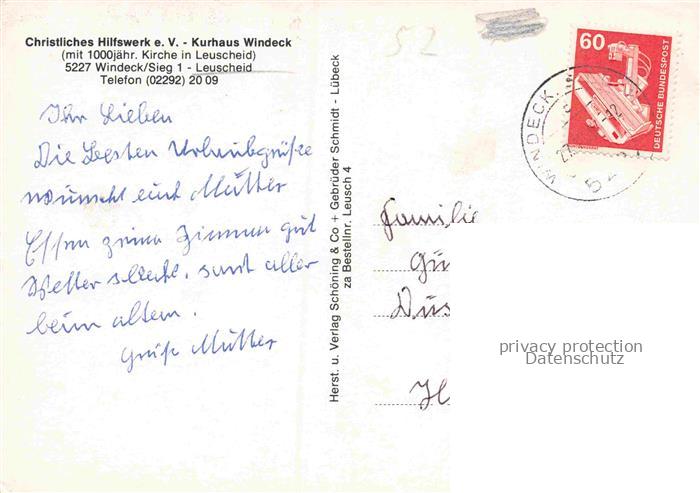 Christliches Hilfswerk e. V. - Kurhaus Windeck
(mit 1000jähr. Kirche in Leuscheid)
5227 Windeck/Sieg 1 - Leuscheid
Telefon (02292) 20 09
Ihr Lieben
Die besten Urlaubsgrüße
wünscht euch Mutter
Essen prima Zimmer gut
Wetter schlecht, sonst alles
beim altem.
Gruß Mutter
Herst. u. Verlag Schöning & Co + Gebrüder Schmidt - Lübeck
za Bestellnr. Leusch 4
52
60
DEUTSCHE BUNDESPOST
WINDECK
Familie
Gü
Düs
privacy protection
Datenschutz